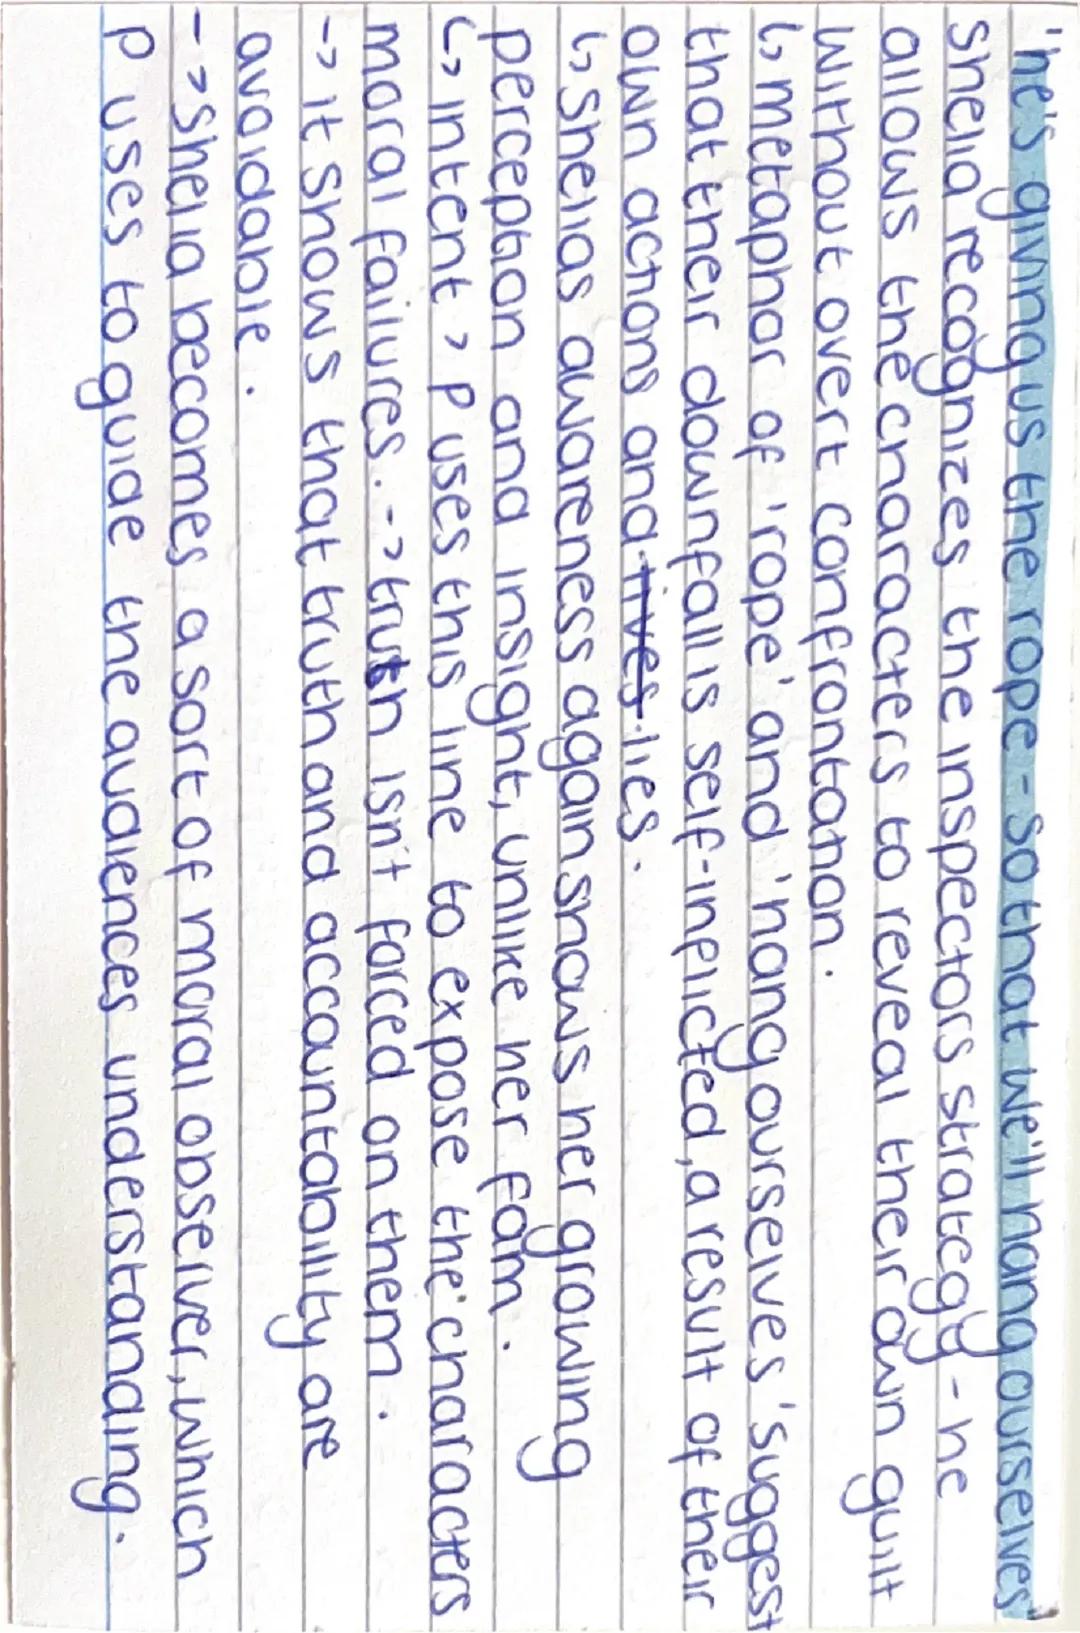 'he's giving us the rope - so that we'll hang ourselves'
Sheila recognizes the inspectors strategy - he
allows the characters to reveal their own guilt
without overt confrontation.
↳ metaphor of 'rope' and 'hang ourselves' suggest
that their downfall is self-inflicted, a result of their
own actions and lives lies.
↳ Shelias awareness again shows her growing
perception and insight, unlike her fam.
↳ intent > P uses this line to expose the characters
moral failures. -> truth isn't forced on them.
-> it shows that truth and accountability are
avoidable.
-> Sheila becomes a sort of moral observer, which
P uses to guide the audiences understanding.